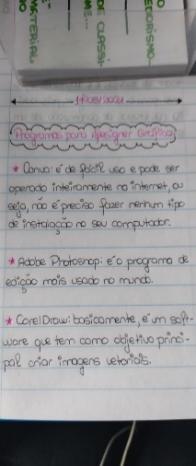 MATERIAL
DE CLASSI
ME...
Programas para Designer Gráfico
* Canva: é de fácil uso e pode ser
operado inteiramente na internet, ou
seja, não é preciso fazer nenhum tipo
de instalação no seu computador.
* Adobe Photoshop: é o programa de
edição mais usado no mundo.
* CorelDraw: basicamente, é um soft-
ware que tem como objetivo princi-
pal criar imagens vetoriais.